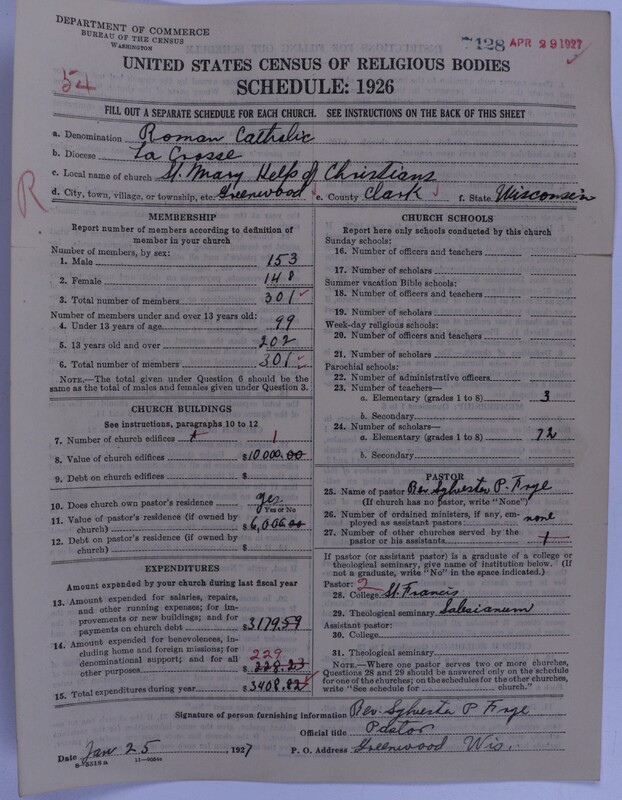 DEPARTMENT OF COMMERCE
BUREAU OF THE CENSUS
WASHINGTON
7128 APR 29 1927
UNITED STATES CENSUS OF RELIGIOUS BODIES
SCHEDULE: 1926
54
FILL OUT A SEPARATE SCHEDULE FOR EACH CHURCH. SEE INSTRUCTIONS ON THE BACK OF THIS SHEET
a. Denomination Roman Catholic
b. Diocese La Crosse
c. Local name of church St. Mary Help of Christians
d. City, town, village, or township, etc. Greenwood e. County Clark f. State Wisconsin
R
MEMBERSHIP
Report number of members according to definition of
member in your church
Number of members, by sex:
1. Male 153
2. Female 148
3. Total number of members 301
Number of members under and over 13 years old:
4. Under 13 years of age 99
5. 13 years old and over 202
6. Total number of members 301
NOTE.—The total given under Question 6 should be
the same as the total of males and females given under Question 3.
CHURCH BUILDINGS
See instructions, paragraphs 10 to 12
7. Number of church edifices 1
8. Value of church edifices $10000.00
9. Debt on church edifices $
10. Does church own pastor's residence yes
Yes or No
11. Value of pastor's residence (if owned by
church) $6,000.00
12. Debt on pastor's residence (if owned by
church) $
EXPENDITURES
Amount expended by your church during last fiscal year
13. Amount expended for salaries, repairs,
and other running expenses; for im-
provements or new buildings; and for
payments on church debt $3179.59
14. Amount expended for benevolences, in-
cluding home and foreign missions; for
denominational support; and for all 229
other purposes $228.23
15. Total expenditures during year $3408.82
CHURCH SCHOOLS
Report here only schools conducted by this church
Sunday schools:
16. Number of officers and teachers
17. Number of scholars
Summer vacation Bible schools:
18. Number of officers and teachers
19. Number of scholars
Week-day religious schools:
20. Number of officers and teachers
21. Number of scholars
Parochial schools:
22. Number of administrative officers
23. Number of teachers—
a. Elementary (grades 1 to 8) 3
b. Secondary
24. Number of scholars—
a. Elementary (grades 1 to 8) 72
b. Secondary
PASTOR
25. Name of pastor Rev. Sylvester P. Frye
(If church has no pastor, write "None")
26. Number of ordained ministers, if any, em-
ployed as assistant pastors none
27. Number of other churches served by the
pastor or his assistants 1
If pastor (or assistant pastor) is a graduate of a college or
theological seminary, give name of institution below. (If
not a graduate, write "No" in the space indicated.)
Pastor: 2
28. College St. Francis
29. Theological seminary Salesianum
Assistant pastor:
30. College
31. Theological seminary
NOTE.—Where one pastor serves two or more churches,
Questions 28 and 29 should be answered only on the schedule
for one of the churches; on the schedules for the other churches,
write "See schedule for church."
Signature of person furnishing information Rev. Sylvester P Frye
Official title Pastor
Date Jan 25, 1927 P. O. Address Greenwood Wis.
8-3518a 11—00844